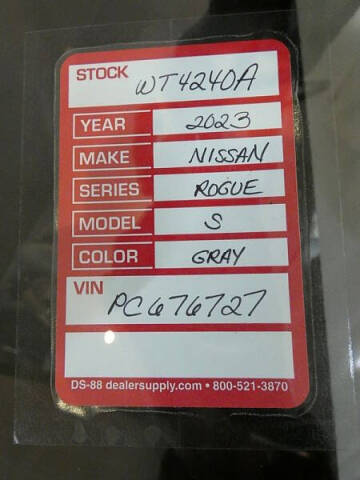 STOCK WT4240A
YEAR 2023
MAKE NISSAN
SERIES ROGUE
MODEL S
COLOR GRAY
VIN
PC676727
DS-88 dealersupply.com • 800-521-3870